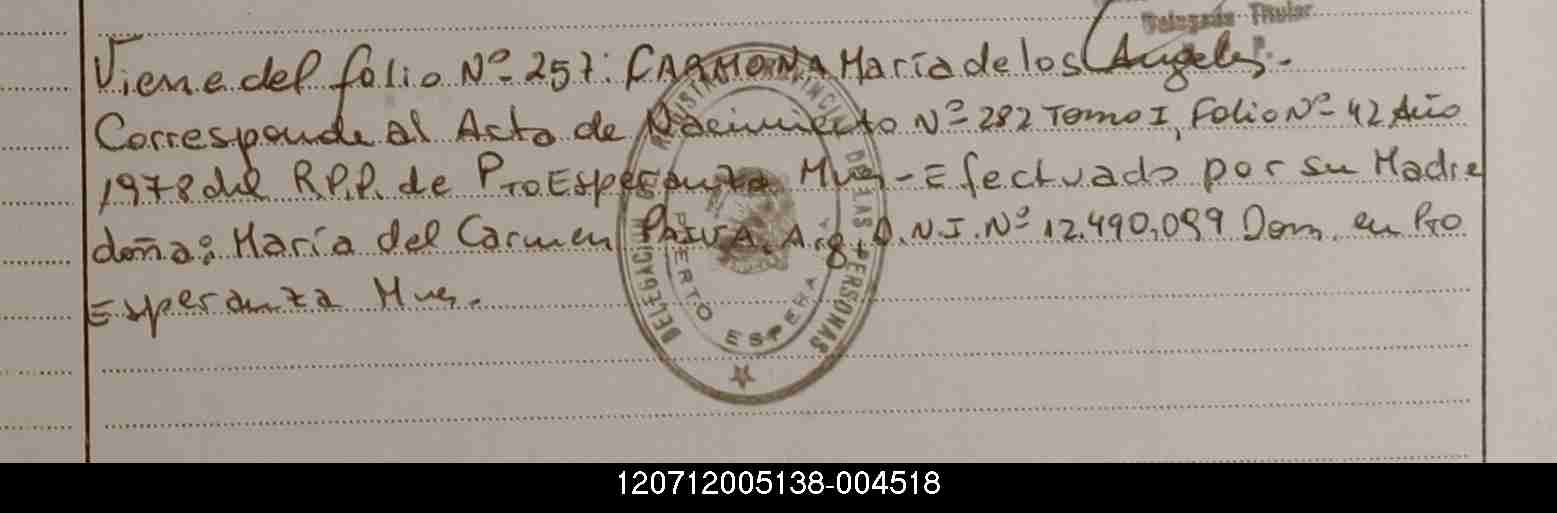 Delegada Titular
Viene del folio Nº 257: CARMONA María de los Angeles.-
Corresponde al Acta de Nacimiento Nº 282 Tomo I, Folio Nº 42 Año
1978 del R.P.P. de Pto Esperanza Mnes - Efectuado por su Madre
doña: María del Carmen PAIVA. Arg. D.N.I. Nº 12.490.099 Dom. en Pto
Esperanza Mnes.
DELEGACION REGISTRO PROVINCIAL DE LAS PERSONAS
PUERTO ESPERANZA
120712005138-004518